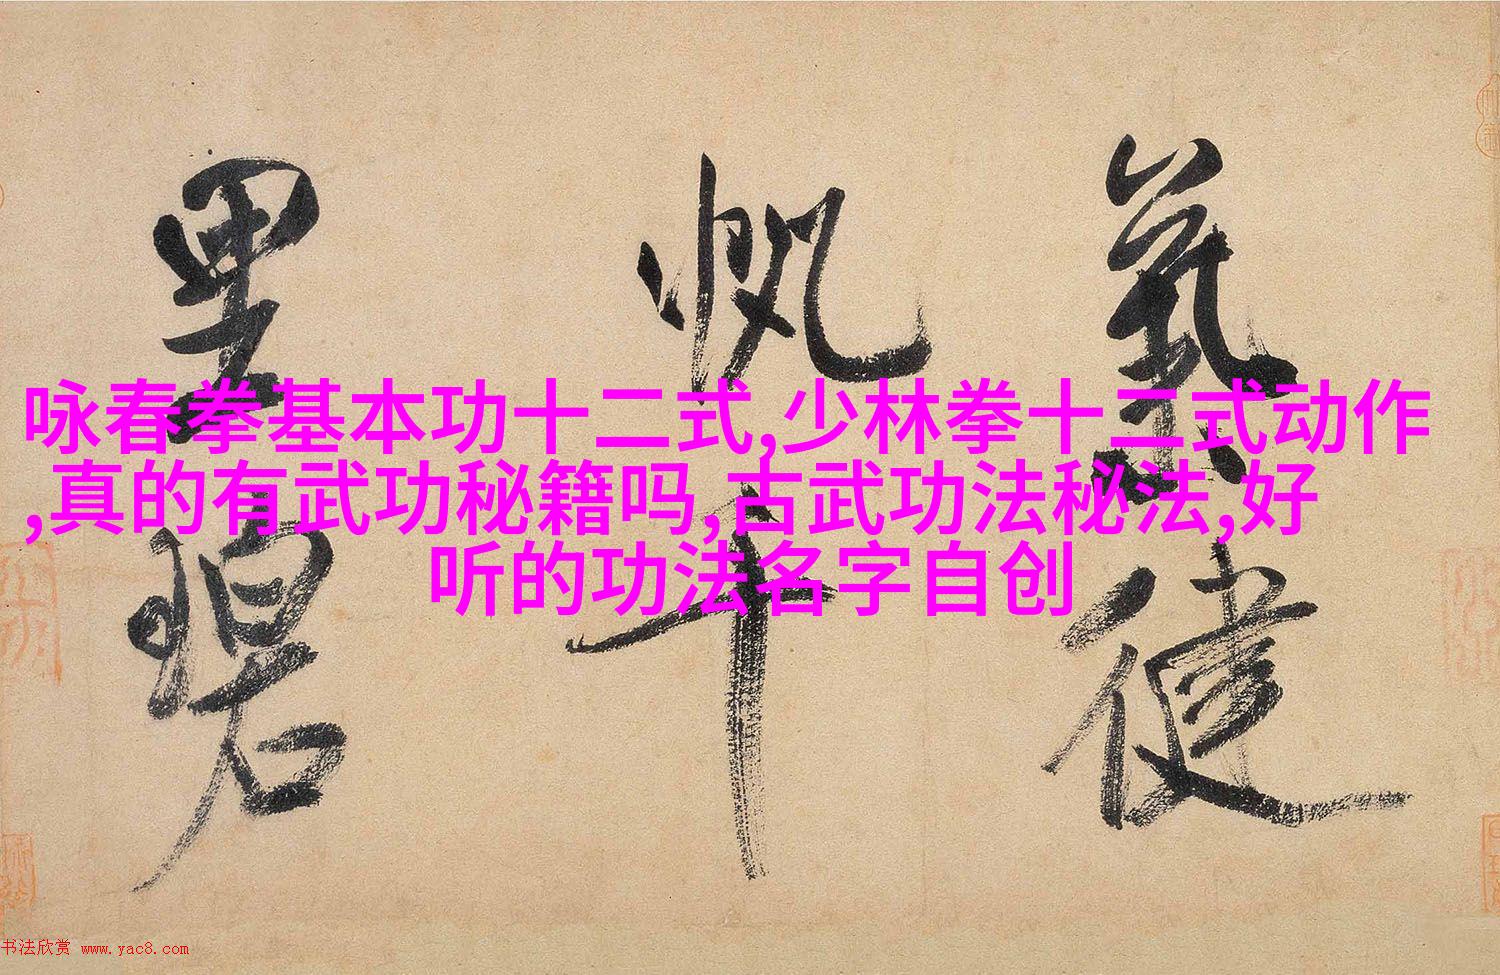 咏春拳基本功十二式,少林拳十二式动作
,真的有武功秘籍吗,古武功法秘法,好
听的功法名字自创
健
千
里
碧
书法欣赏 www.yac8.com